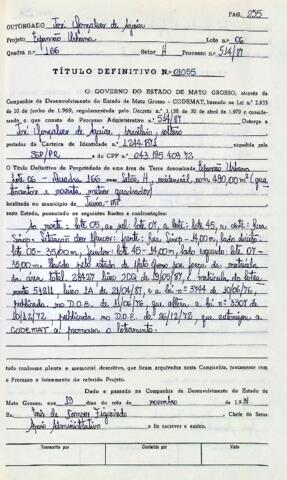 PAG. 255
OUTORGADO José Gonçalves de Aguiar
Projeto Expansão Urbana Lote no 06
Quadra n.º 166 Setor H Processo n.º 514/87
TÍTULO DEFINITIVO N.º 01055
O GOVERNO DO ESTADO DE MATO GROSSO, através da
Companhia de Desenvolvimento do Estado de Mato Grosso - CODEMAT, baseado na Lei n.º 2.833
de 10 de junho de 1969, regulamentado pelo Decreto n.º 1.138 de 30 de abril de 1970 e considerando
o que consta do Processo Administrativo n.º 514/87 Outorga a
José Gonçalves de Aguiar, brasileiro, solteiro
portador da Carteira de Identidade n.º 1.244.871 expedida pela
SSP/PR do CPF n.º 043 195 403 72
o Título Definitivo de Propriedade de uma área de Terra denominada Expansão Urbana
Lote 06 - Quadra 166 Setor H, residencial, com 490,00 m² (qua
trocentos e noventa metros quadrados)
localizada no município de MT
neste Estado, possuindo os seguintes limites e confrontações:
Ao norte: lote 05, ao sul: lote 07, a leste: lote 45, a oeste: Rua
frente: Rua 14,00m, lado direito:
lote 05 - 35,00m, fundos: lote 45 - 14,00m, lado esquerdo: lote 07 -
35,00m. havido pelo estado de Mato Grosso por força da matrícula
28427 livro 2CQ de 19/05/87, matrícula do lotea
mento 51211 livro 2A de 21/04/87, e a lei nº 3744 de 10/06/76,
publicada no D.O.E. de 11/06/76, que altera a lei nº 3307 de
18/12/72, publicada no D.O.E. de 26/12/72, que autoriza a
CODEMAT a promover o loteamento.
tudo conforme planta e memorial descritivo, que ficam arquivados nesta Companhia, juntamente com
o Processo e loteamento do referido Projeto.
Dado e passado na Companhia de Desenvolvimento do Estado de
Mato Grosso, aos 19 dias do mês de novembro de 1.991
Eu, de Campos Figueiredo, Chefe do Setor
Apoio Administrativo o fiz escrever e assino.
Transcrito por Conferido por Visto